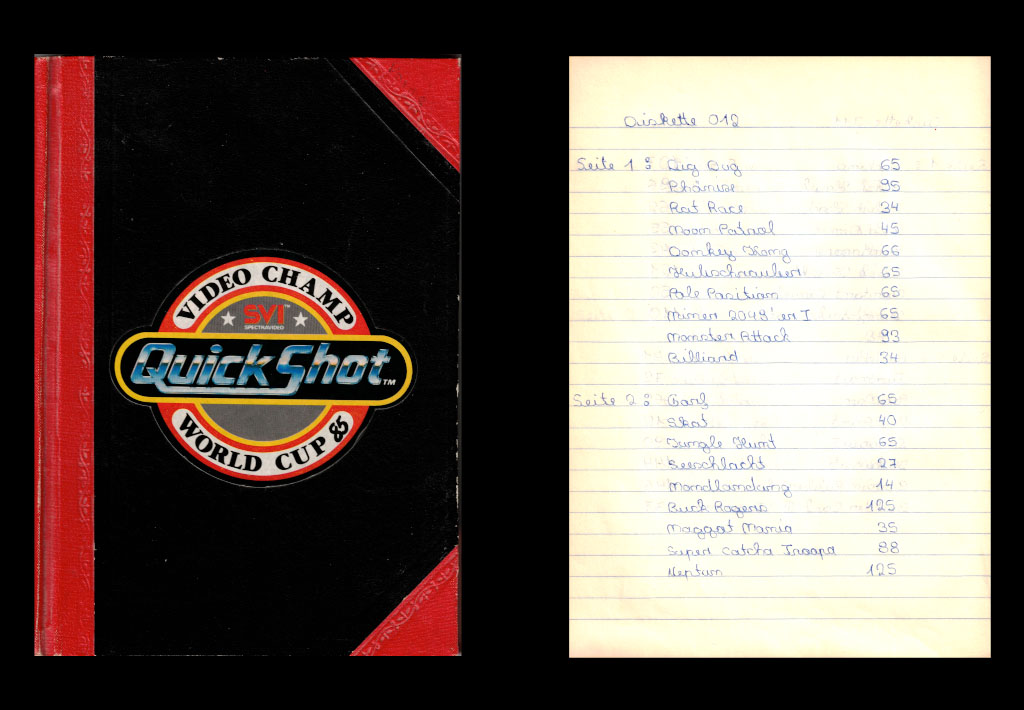 VIDEO CHAMP
SVI™
SPECTRAVIDEO
QuickShot™
WORLD CUP 85
Diskette 012
Seite 1 : Dig Dug 65
Phönixe 95
Rat Race 34
Moon Patrol 45
Donkey Kong 66
Hubschrauber 65
Pole Position 65
Miner 2049'er I 65
Monster Attack 93
Billiard 34
Seite 2 : 65
Skat 40
Jungle Hunt 65
Seeschlacht 27
Mondlandung 14
Buck Rogers 125
Maggot Mania 35
Super Catcha Troopa 88
Neptun 125